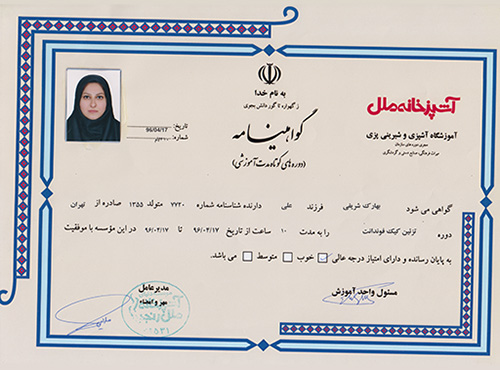 به نام خدا
ز گهواره تا گور دانش بجوی
آشپزخانه ملل
آموزشگاه آشپزی و شیرینی پزی
مجری دوره های سازمان
میراث فرهنگی، صنایع دستی و گردشگری
گواهینامه
(دوره های کوتاه مدت آموزشی)
تاریخ: 96/04/17
شماره:
گواهی می شود بهارک شریفی فرزند علی دارنده شناسنامه شماره ۷۷۳۰ متولد ۱۳۵۵ صادره از تهران
دوره تزئین کیک فوندانت را به مدت ۱۰ ساعت از تاریخ ۹۶/۰۲/۱۷ تا ۹۶/۰۲/۱۷ در این مؤسسه با موفقیت
به پایان رسانده و دارای امتیاز درجه عالی خوب متوسط می باشد.
مسئول واحد آموزش
مدیرعامل
مهر و امضاء